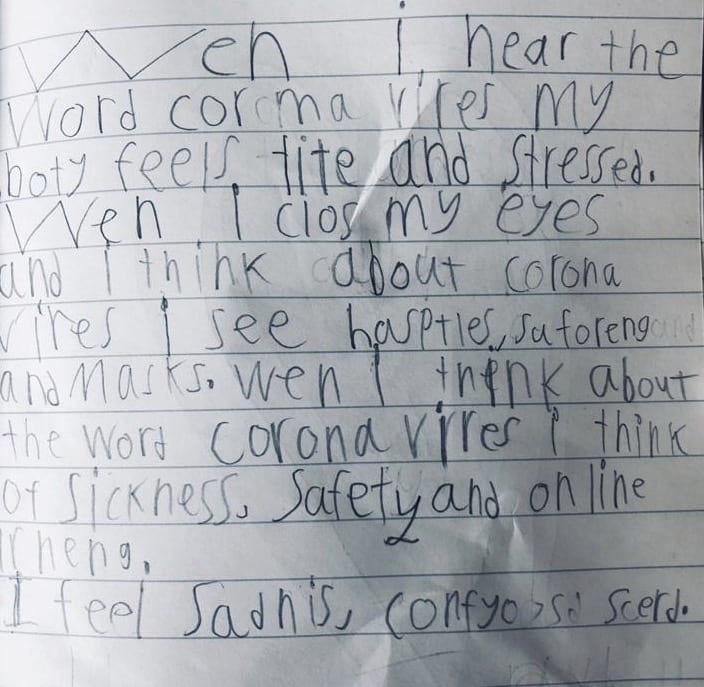 Wen i hear the
Word corona vires my
boty feels tite and stressed.
Wen I clos my eyes
and i think about corona
vires i see hasptles, suforeng
and Masks. Wen I think about
the Word corona virres i think
of sickness, safety and online
lrneng.
I feel Sadnis, scerd.